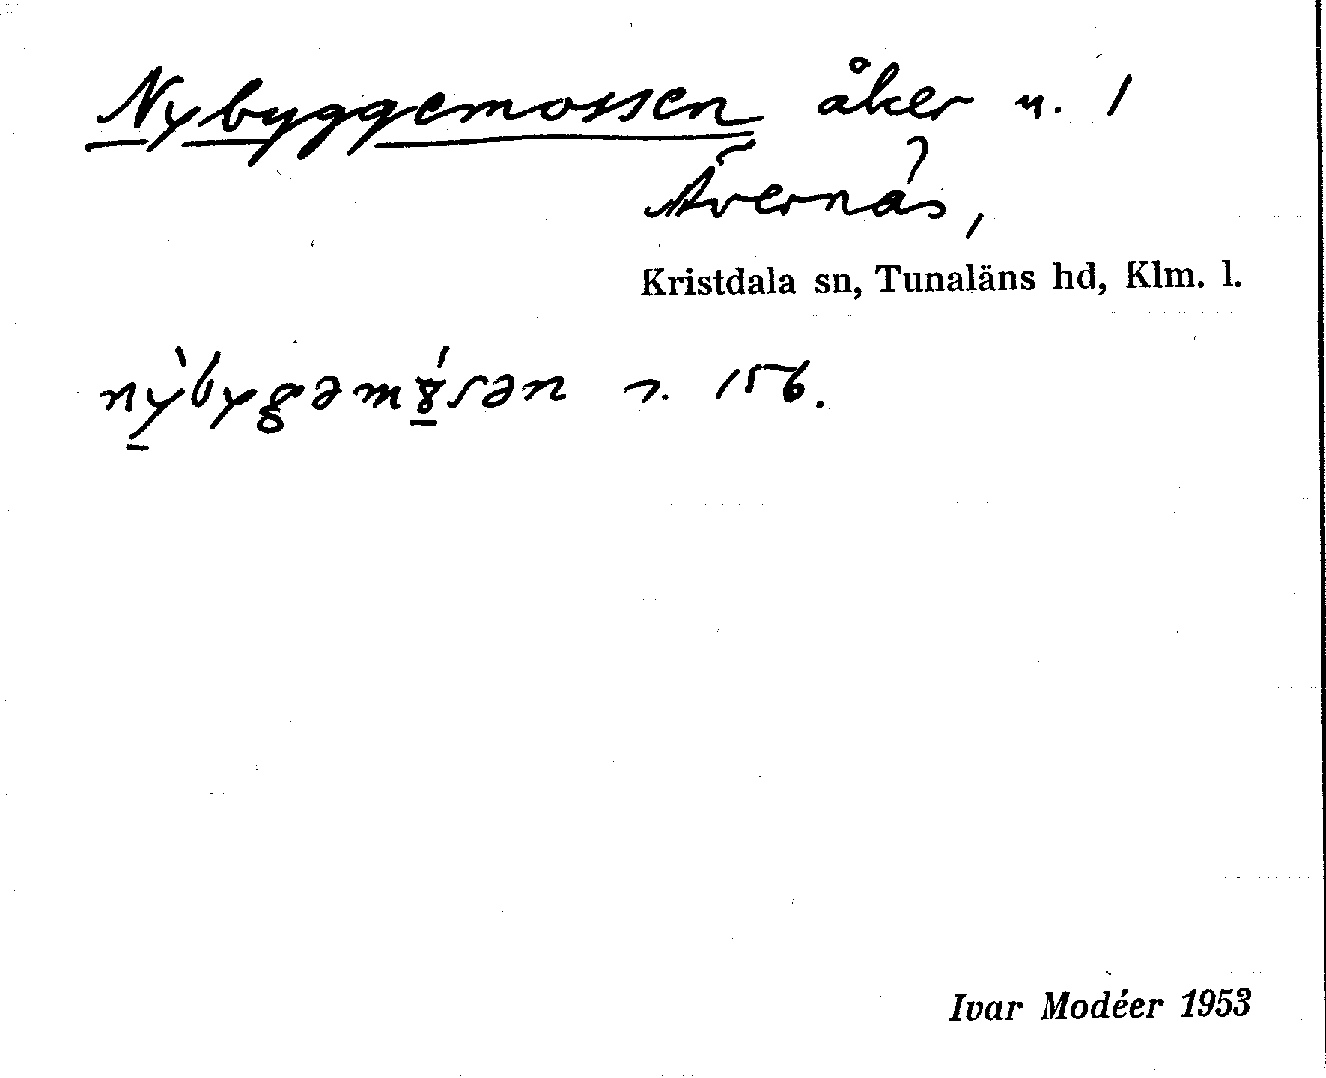 Nybyggemossen åker n. 1
Ävernäs,
Kristdala sn, Tunaläns hd, Klm. l.
156.
Ivar Modéer 1953